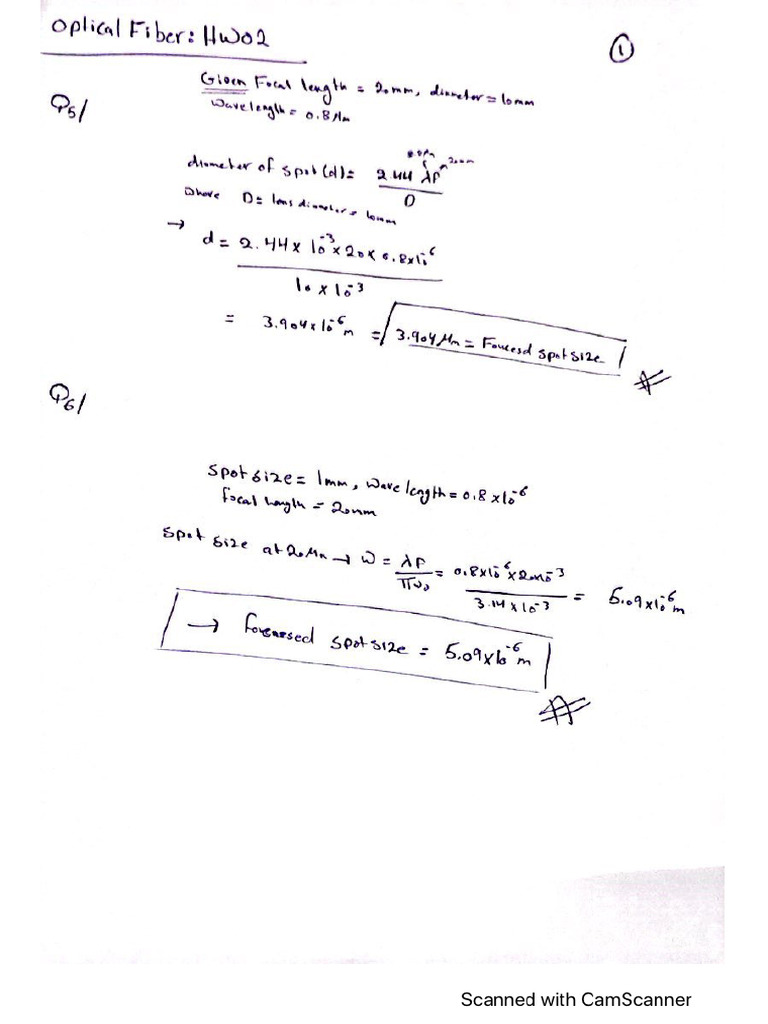 Optical Fiber: HW02
①
Q5/
Given Focal length = 20mm, diameter = 10mm
Wavelength = 0.8 μm
0.8μm 20mm
diameter of spot (d) = 2.44 λF / D
Where D = lens diameter = 10mm
→ d = 2.44 x 10^-3 x 20 x 0.8x10^-6 / 10 x 10^-3
= 3.904x10^-6 m = 3.904 μm = Foucesd spot size
Q6/
Spot size = 1mm, Wave length = 0.8 x10^-6
focal length = 20mm
Spot size at 20 → W = λF / πω₀ = 0.8x10^-6 x 20x10^-3 / 3.14 x 10^-3 = 5.09x10^-6 m
→ spot size = 5.09x10^-6 m
Scanned with CamScanner